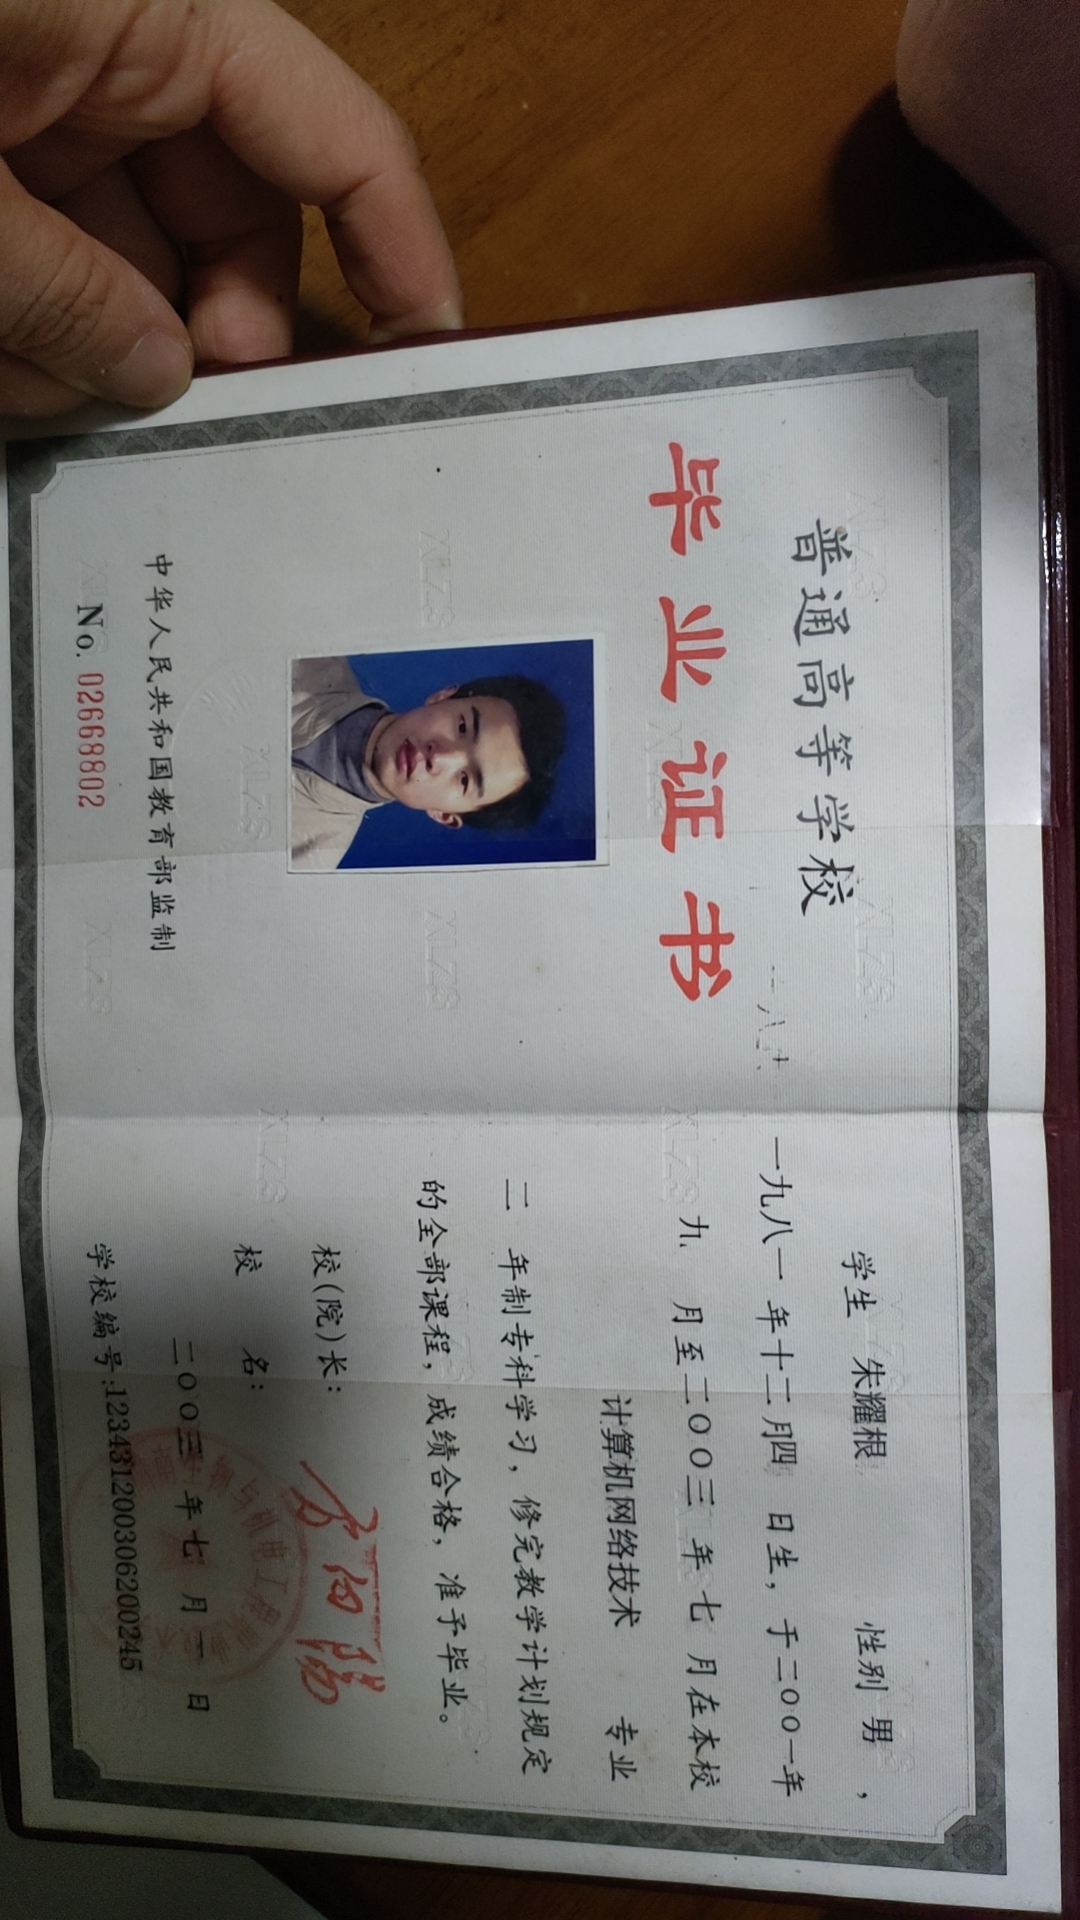 普通高等学校
毕业证书
中华人民共和国教育部监制
No. 02668802
学生 朱耀根 性别 男,
一九八一 年十二月四 日生,于二〇〇一年
九 月至二〇〇三 年 七 月在本校
计算机网络技术 专业
二 年制专科学习,修完教学计划规定
的全部课程,成绩合格,准予毕业。
校(院)长:
校 名:
二〇〇三 年 七 月 一 日
学校编号:123431200306200245
XLZS